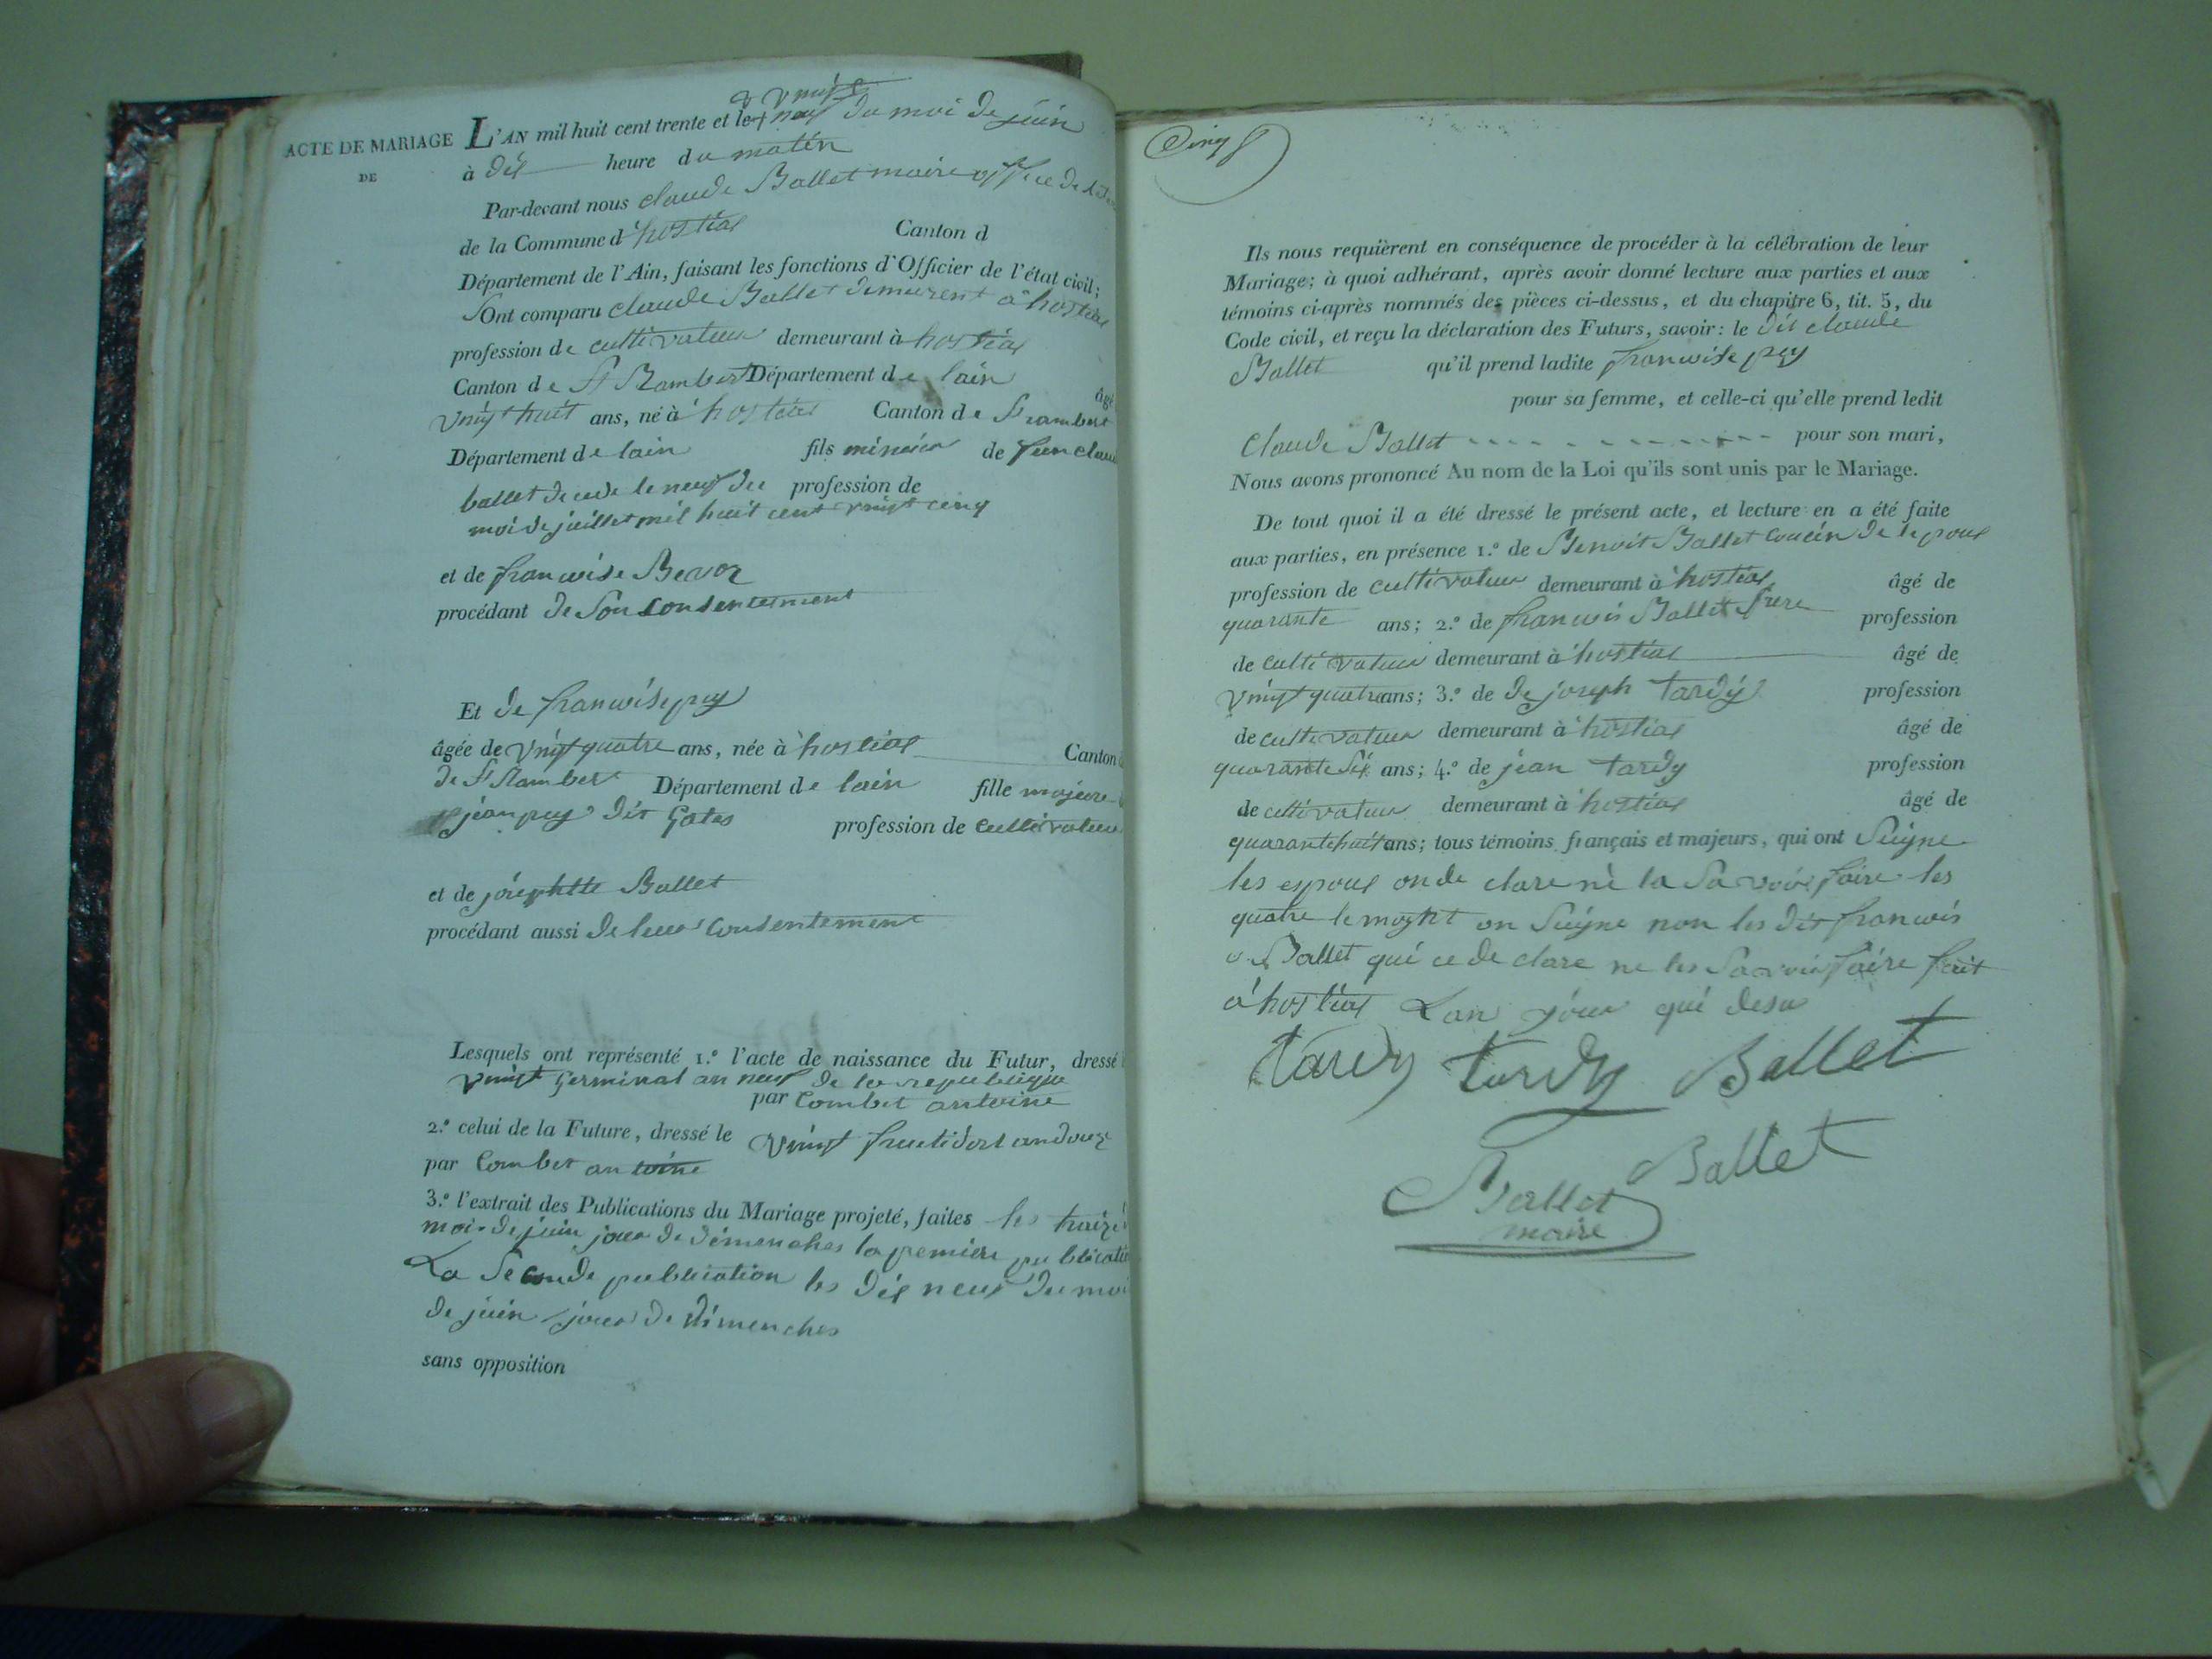 ACTE DE MARIAGE
DE
& vingt
L'AN mil huit cent trente et le neuf du moi de juin
à dix heure du matin
Par-devant nous claude Ballet maire
de la Commune d'hostias Canton d
Département de l'Ain, faisant les fonctions d'Officier de l'état civil;
Ont comparu claude Ballet demeurent a hostias
profession de cultivateur demeurant à hostias
Canton de St Rambert Département de lain âgé
vingt huit ans, né à hostias Canton de St rambert
Département de lain fils mineur de feu claude
ballet decede le neuf du profession de
moi de juillet mil huit cent vingt cinq
et de francoise
procédant de Son consentement
Et de francoise puy
âgée de vingt quatre ans, née à hostias Canton
de St Rambert Département de lain fille majeure
jean puy dit Gotas profession de cultivateur
et de josephtte Ballet
procédant aussi de leur consentement
Lesquels ont représenté 1.° l'acte de naissance du Futur, dressé
vingt germinal an neuf de la republique
par Combet antoine
2.° celui de la Future, dressé le vingt fructidort an douze
par Combet antoine
3.° l'extrait des Publications du Mariage projeté, faites les
moi de juin jour de dimenches la premiere publication
La Seconde publiciation les dix neuf du moi
de juin jour de dimenches
sans opposition
Cinq
Ils nous requièrent en conséquence de procéder à la célébration de leur
Mariage; à quoi adhérant, après avoir donné lecture aux parties et aux
témoins ci-après nommés des pièces ci-dessus, et du chapitre 6, tit. 5, du
Code civil, et reçu la déclaration des Futurs, savoir: le dit claude
Ballet qu'il prend ladite francoise puy
pour sa femme, et celle-ci qu'elle prend ledit
Claude Ballet pour son mari,
Nous avons prononcé Au nom de la Loi qu'ils sont unis par le Mariage.
De tout quoi il a été dressé le présent acte, et lecture en a été faite
aux parties, en présence 1.° de Benoit Ballet coucin de lepoux
profession de cultivateur demeurant à hostias âgé de
quarante ans; 2.° de francois Ballet frere profession
de cultivateur demeurant à hostias âgé de
vingt quatre ans; 3.° de de joseph tardy profession
de cultivateur demeurant à hostias âgé de
quarante six ans; 4.° de jean tardy profession
de cultivateur demeurant à hostias âgé de
quarante huit ans; tous témoins français et majeurs, qui ont Suigne
les epoux on de clare ne la Savoir faire les
quatre on Suigne non les dit francois
Ballet qui ce de clare ne les Savoir faire fait
a hostias Lan jour qui desu
tardy tardy Ballet
Ballet
Ballet
maire